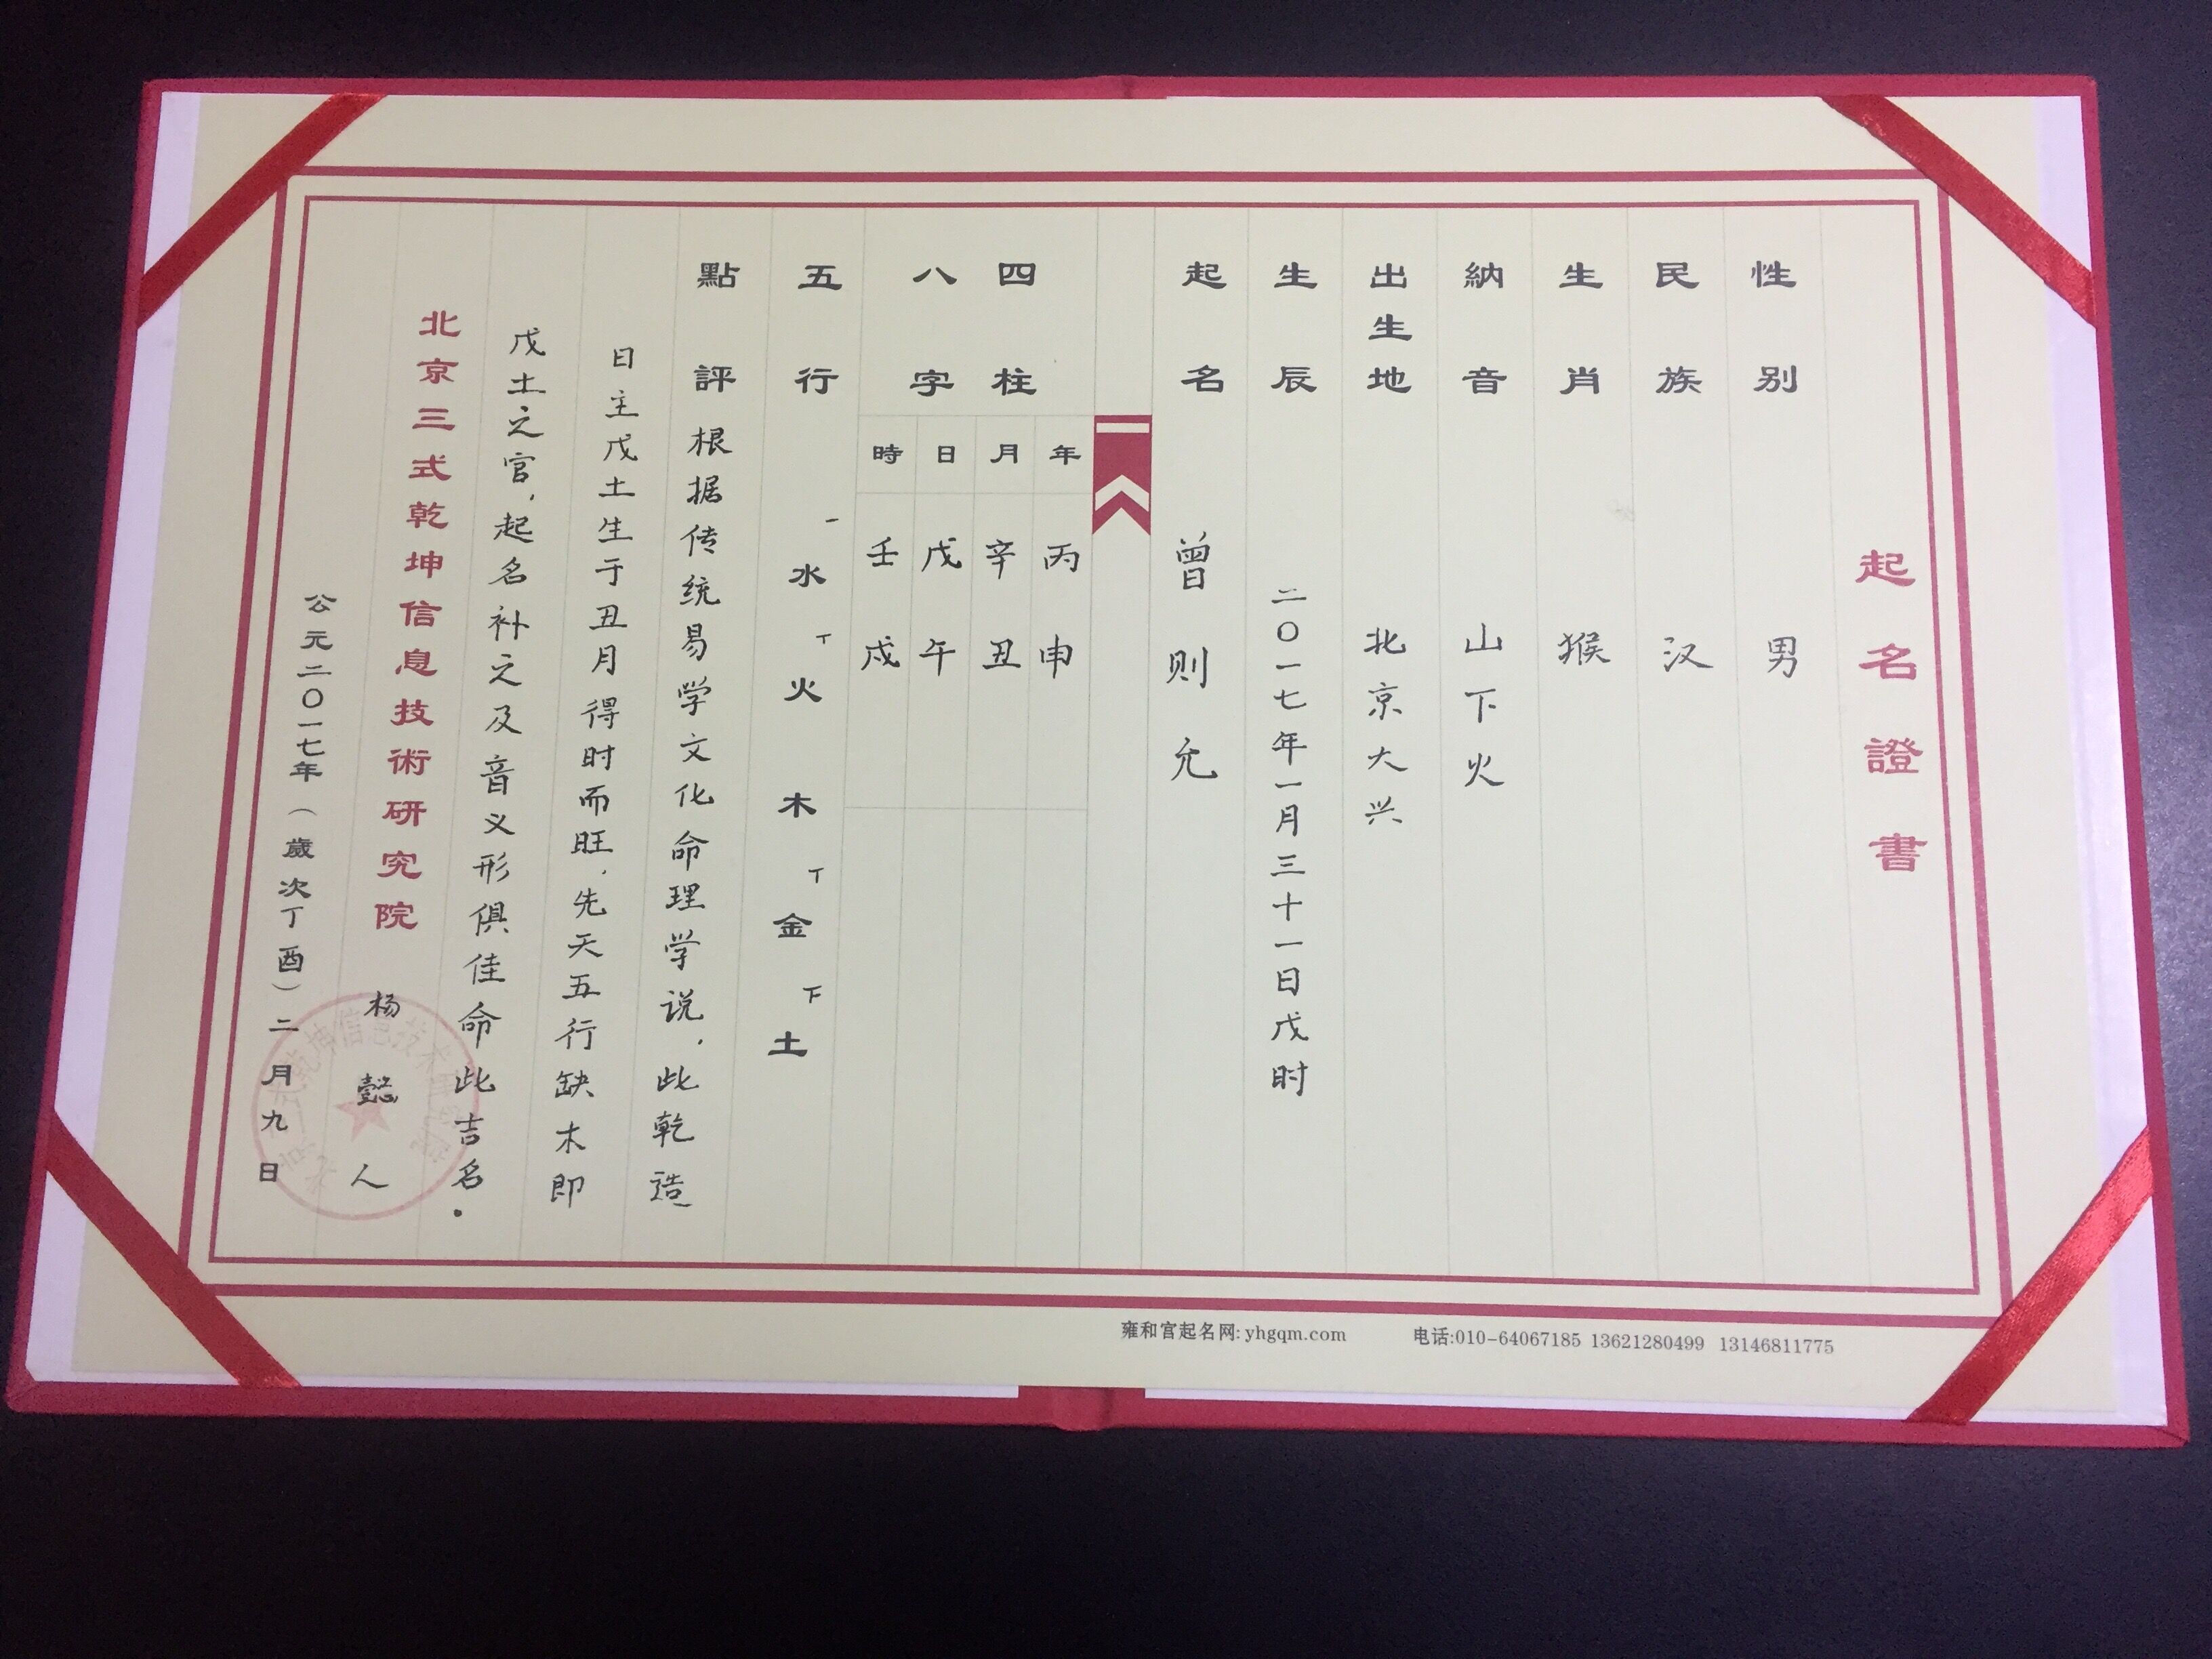 起名證書
性别 男
民族 汉
生肖 猴
納音 山下火
出生地 北京大兴
生辰 二〇一七年一月三十一日戊时
起名 曾则允
四柱
八字
年 丙申
月 辛丑
日 戊午
時 壬戌
五行 一水 丅火 木 丅金 下土
點評 根据传统易学文化命理学说，此乾造
日主戊土生于丑月得时而旺，先天五行缺木即
戊土之官，起名补之及音义形俱佳命此吉名。
北京三式乾坤信息技術研究院 杨懿人
公元二〇一七年（歲次丁酉）二月九日
雍和宫起名网:yhgqm.com 电话:010-64067185 13621280499 13146811775